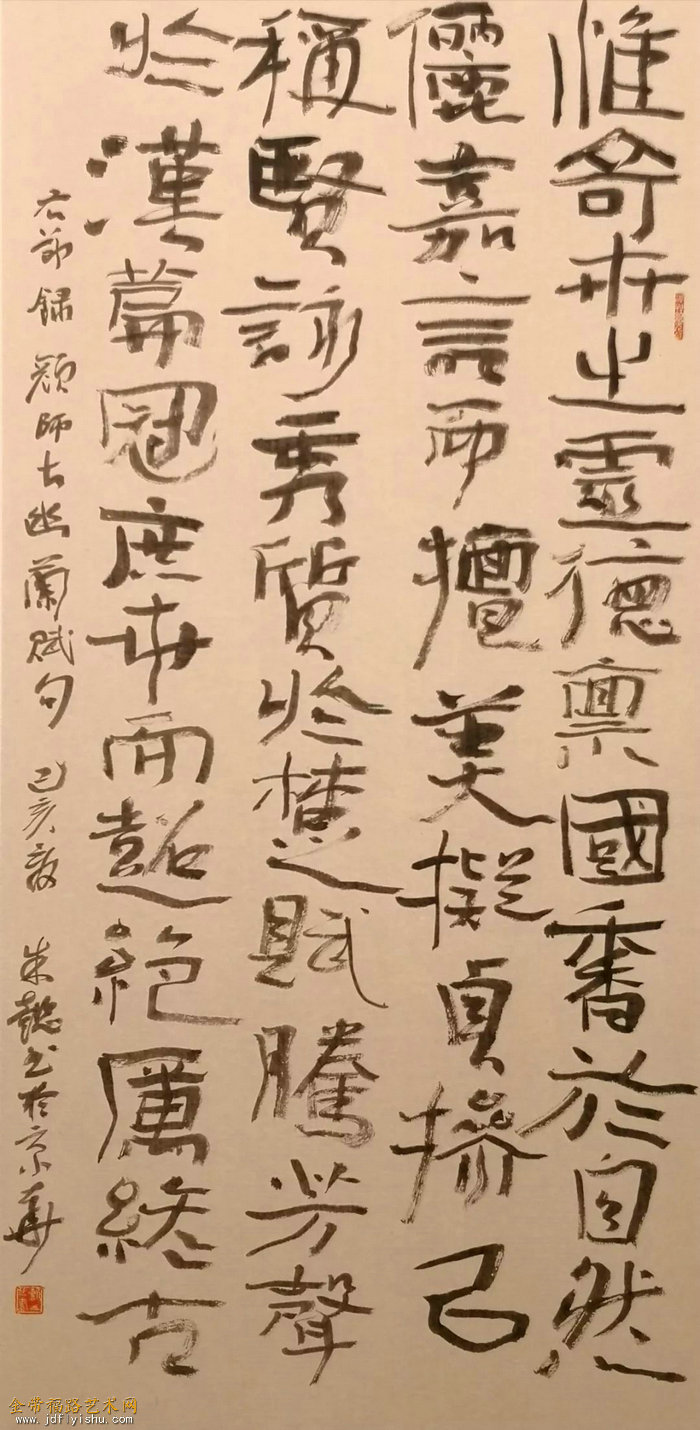 惟奇卉之靈德禀國香於自然
儷嘉言而擅美擬貞操以
稱賢詠秀質於楚賦騰芳聲
於漢篇冠庶卉而超絕厲終古
右節録顔師古幽蘭賦句 己亥夏 朱懿书於京華
金带福路艺术网
www.jdflyishu.com